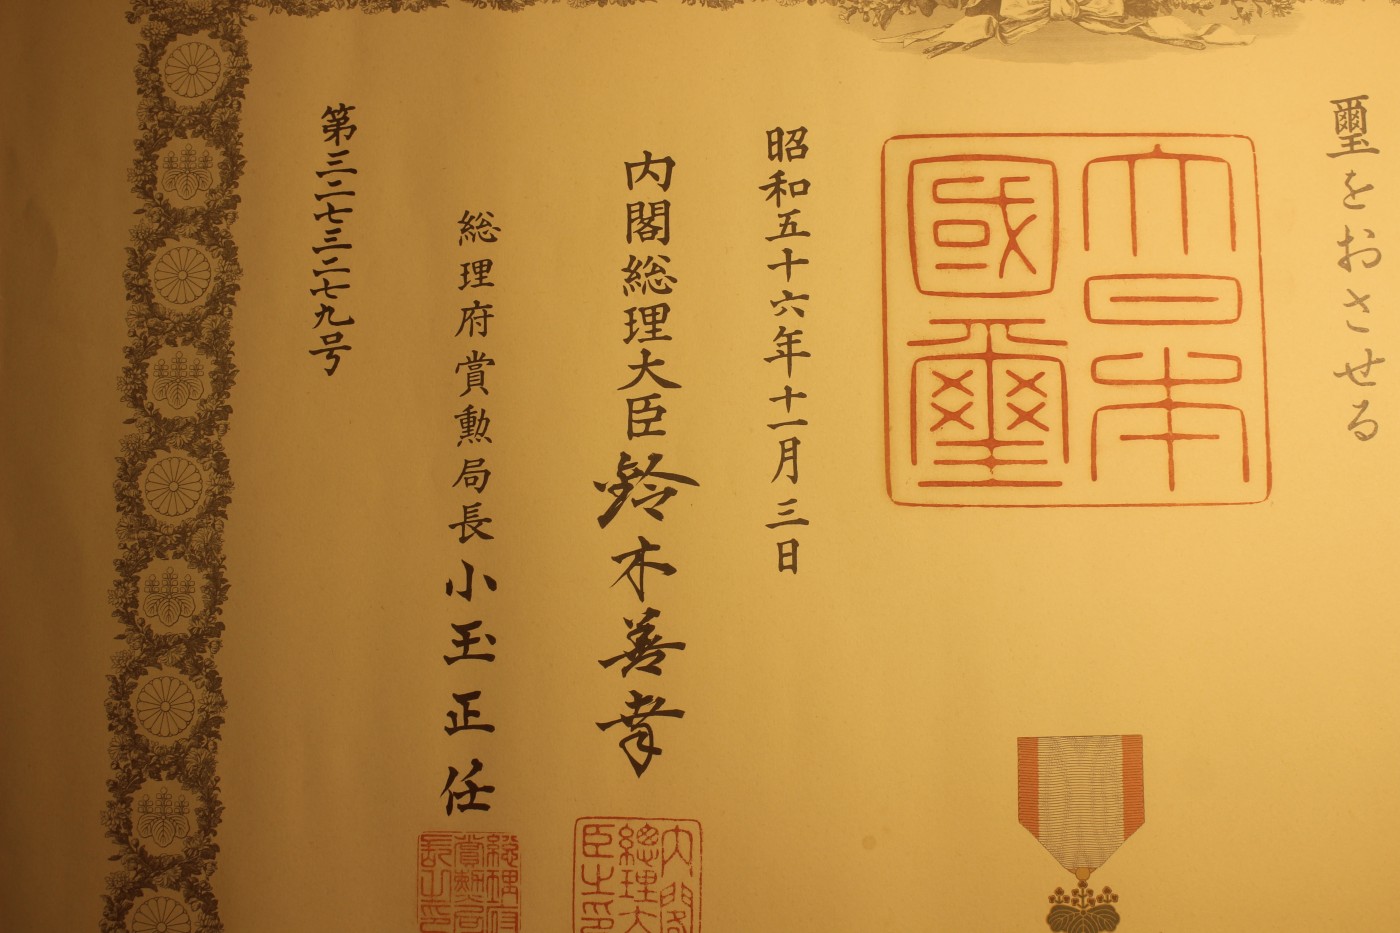 璽をおさせる
大日本
國璽
昭和五十六年十一月三日
内閣総理大臣鈴木善幸
内閣
總理大
臣之印
総理府賞勲局長小玉正任
総理府
賞勲局
長之印
第三二七三二七九号